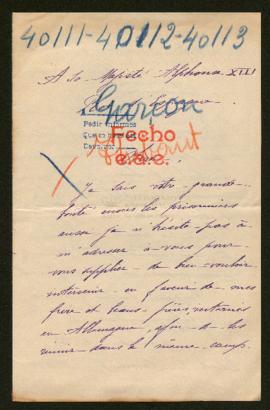 40111-40112-40113
A Sa Majesté Alphonse XIII
Garçon
Pedir informes
Fecho
e.s.e.
Je sais votre grande
bonté envers les prisonniers
aussi je n'hésite pas à
m'adresser à vous pour
vous supplier de bien vouloir
intervenir en faveur de mes
frère et beaux-frères internés
en Allemagne, afin de les
réunir dans le même camp